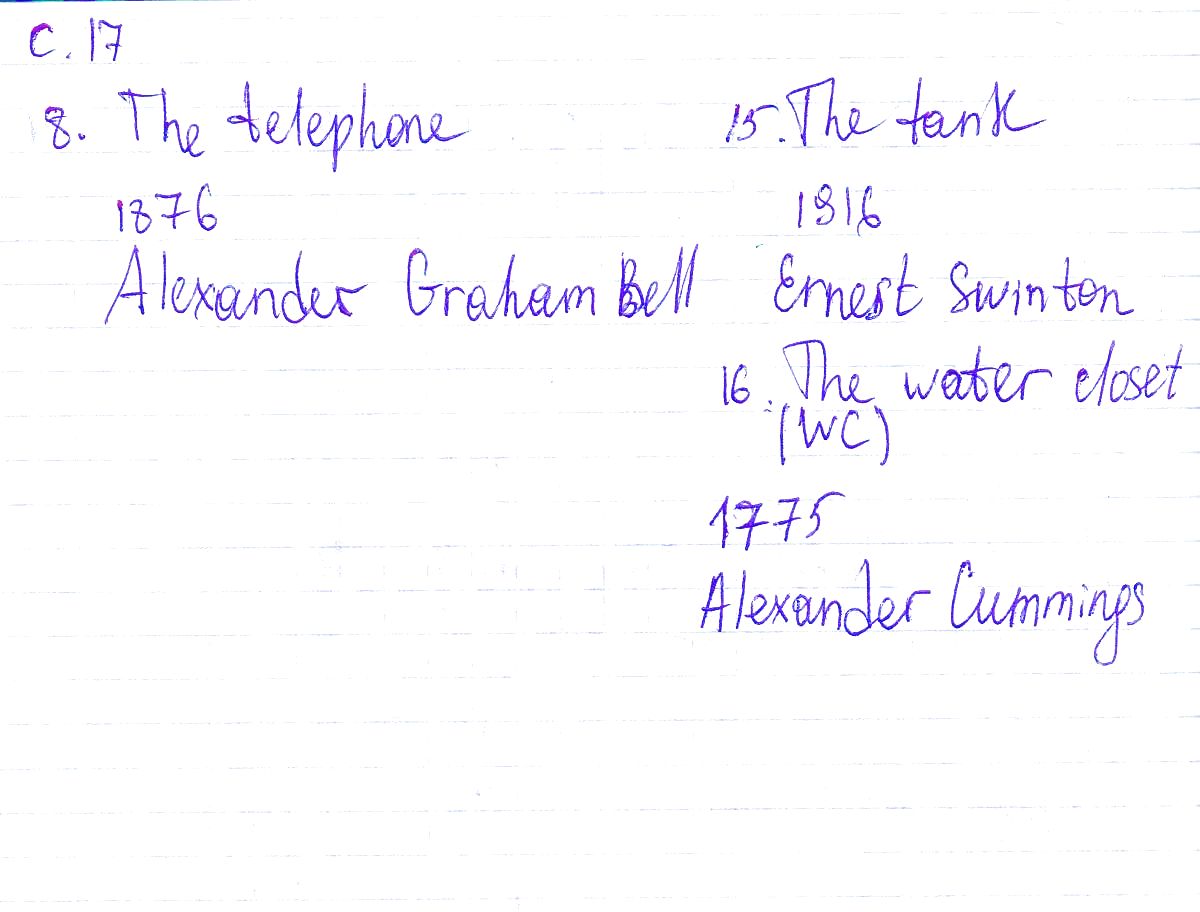 C. 17
8. The telephone
1876
Alexander Graham Bell
15. The tank
1916
Ernest Swinton
16. The water closet
(WC)
1775
Alexander Cummings